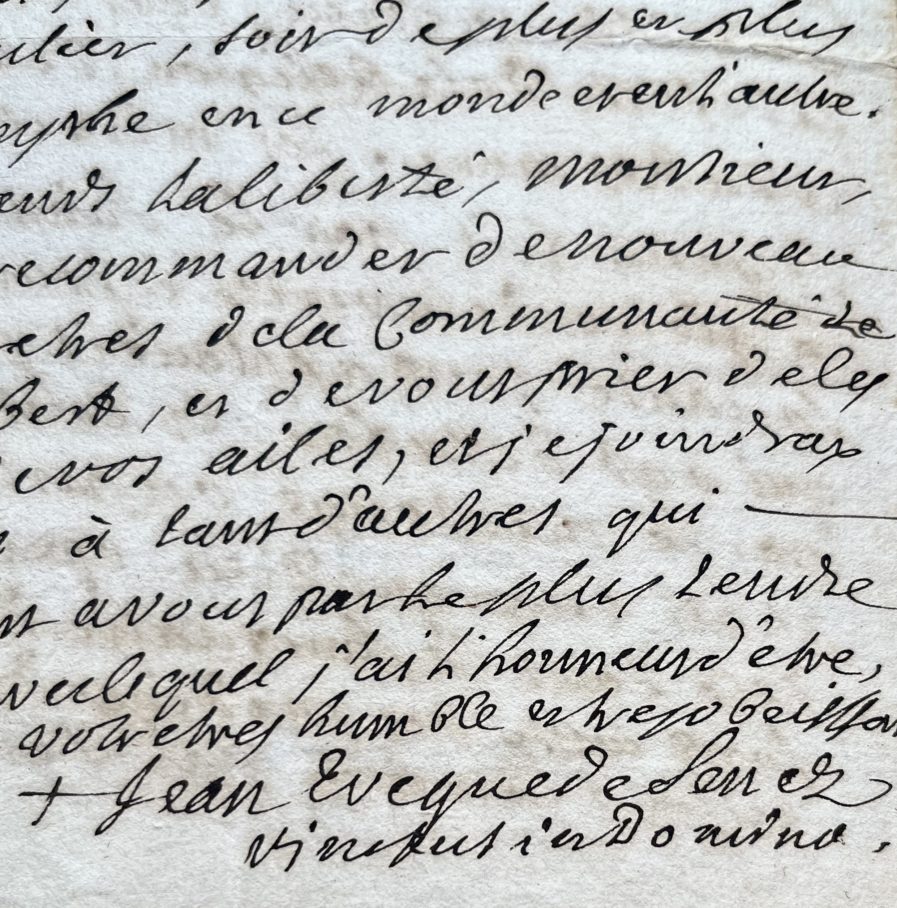 ulier, soit de plus en plus
en ce monde et en l'autre.
prends la liberté, monsieur,
recommander de nouveau
de la Communauté de
Bert, et de vous prier de les
vos ailes, et je joindray
à tant d'autres qui —
a vous par le plus tendre
vec lequel j'ai l'honneur d'être,
votre tres humble et tres obeissan
+ Jean Eveque de Senez
vinctus in Domino.